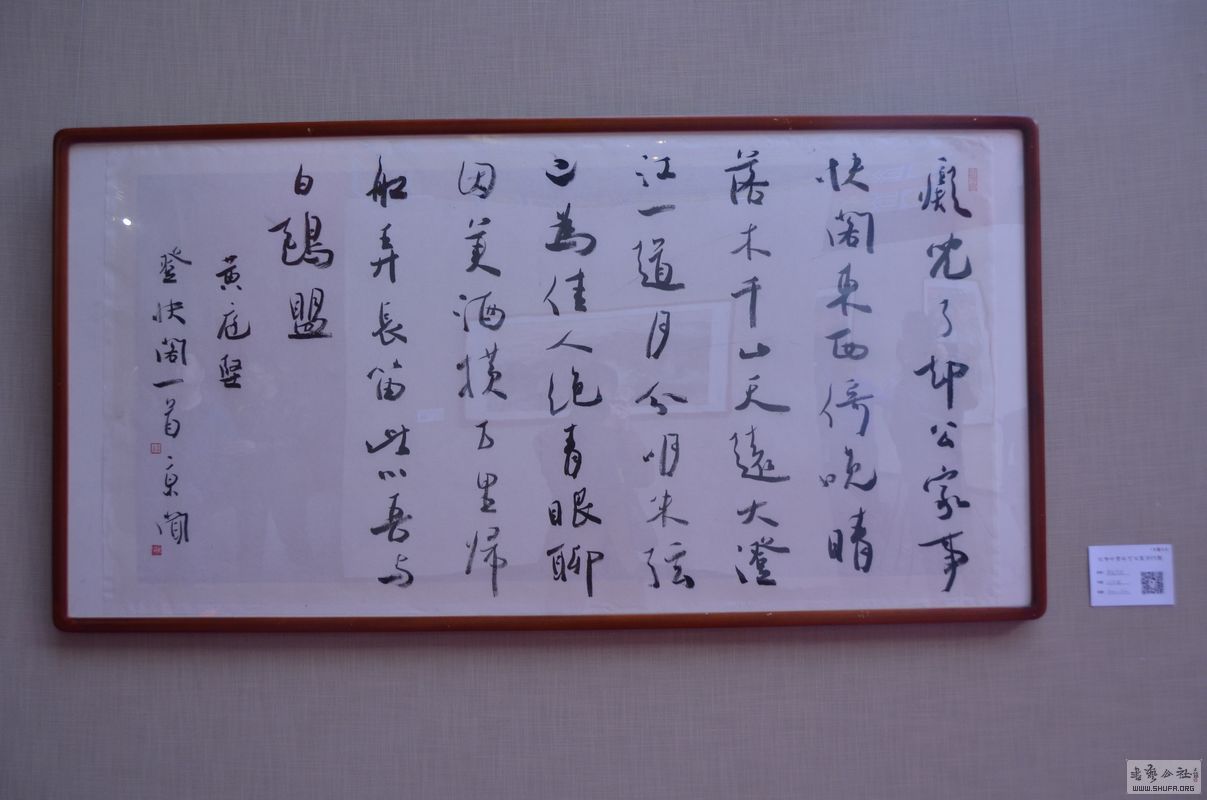 癡兒了却公家事
快閣東西倚晚晴
落木千山天遠大澄
江一道月分明朱弦
已為佳人絕青眼聊
因美酒橫万里歸
船弄長笛此心吾与
白鷗盟
黃庭堅
登快閣一首
書藝公社
WWW.SHUFA.ORG